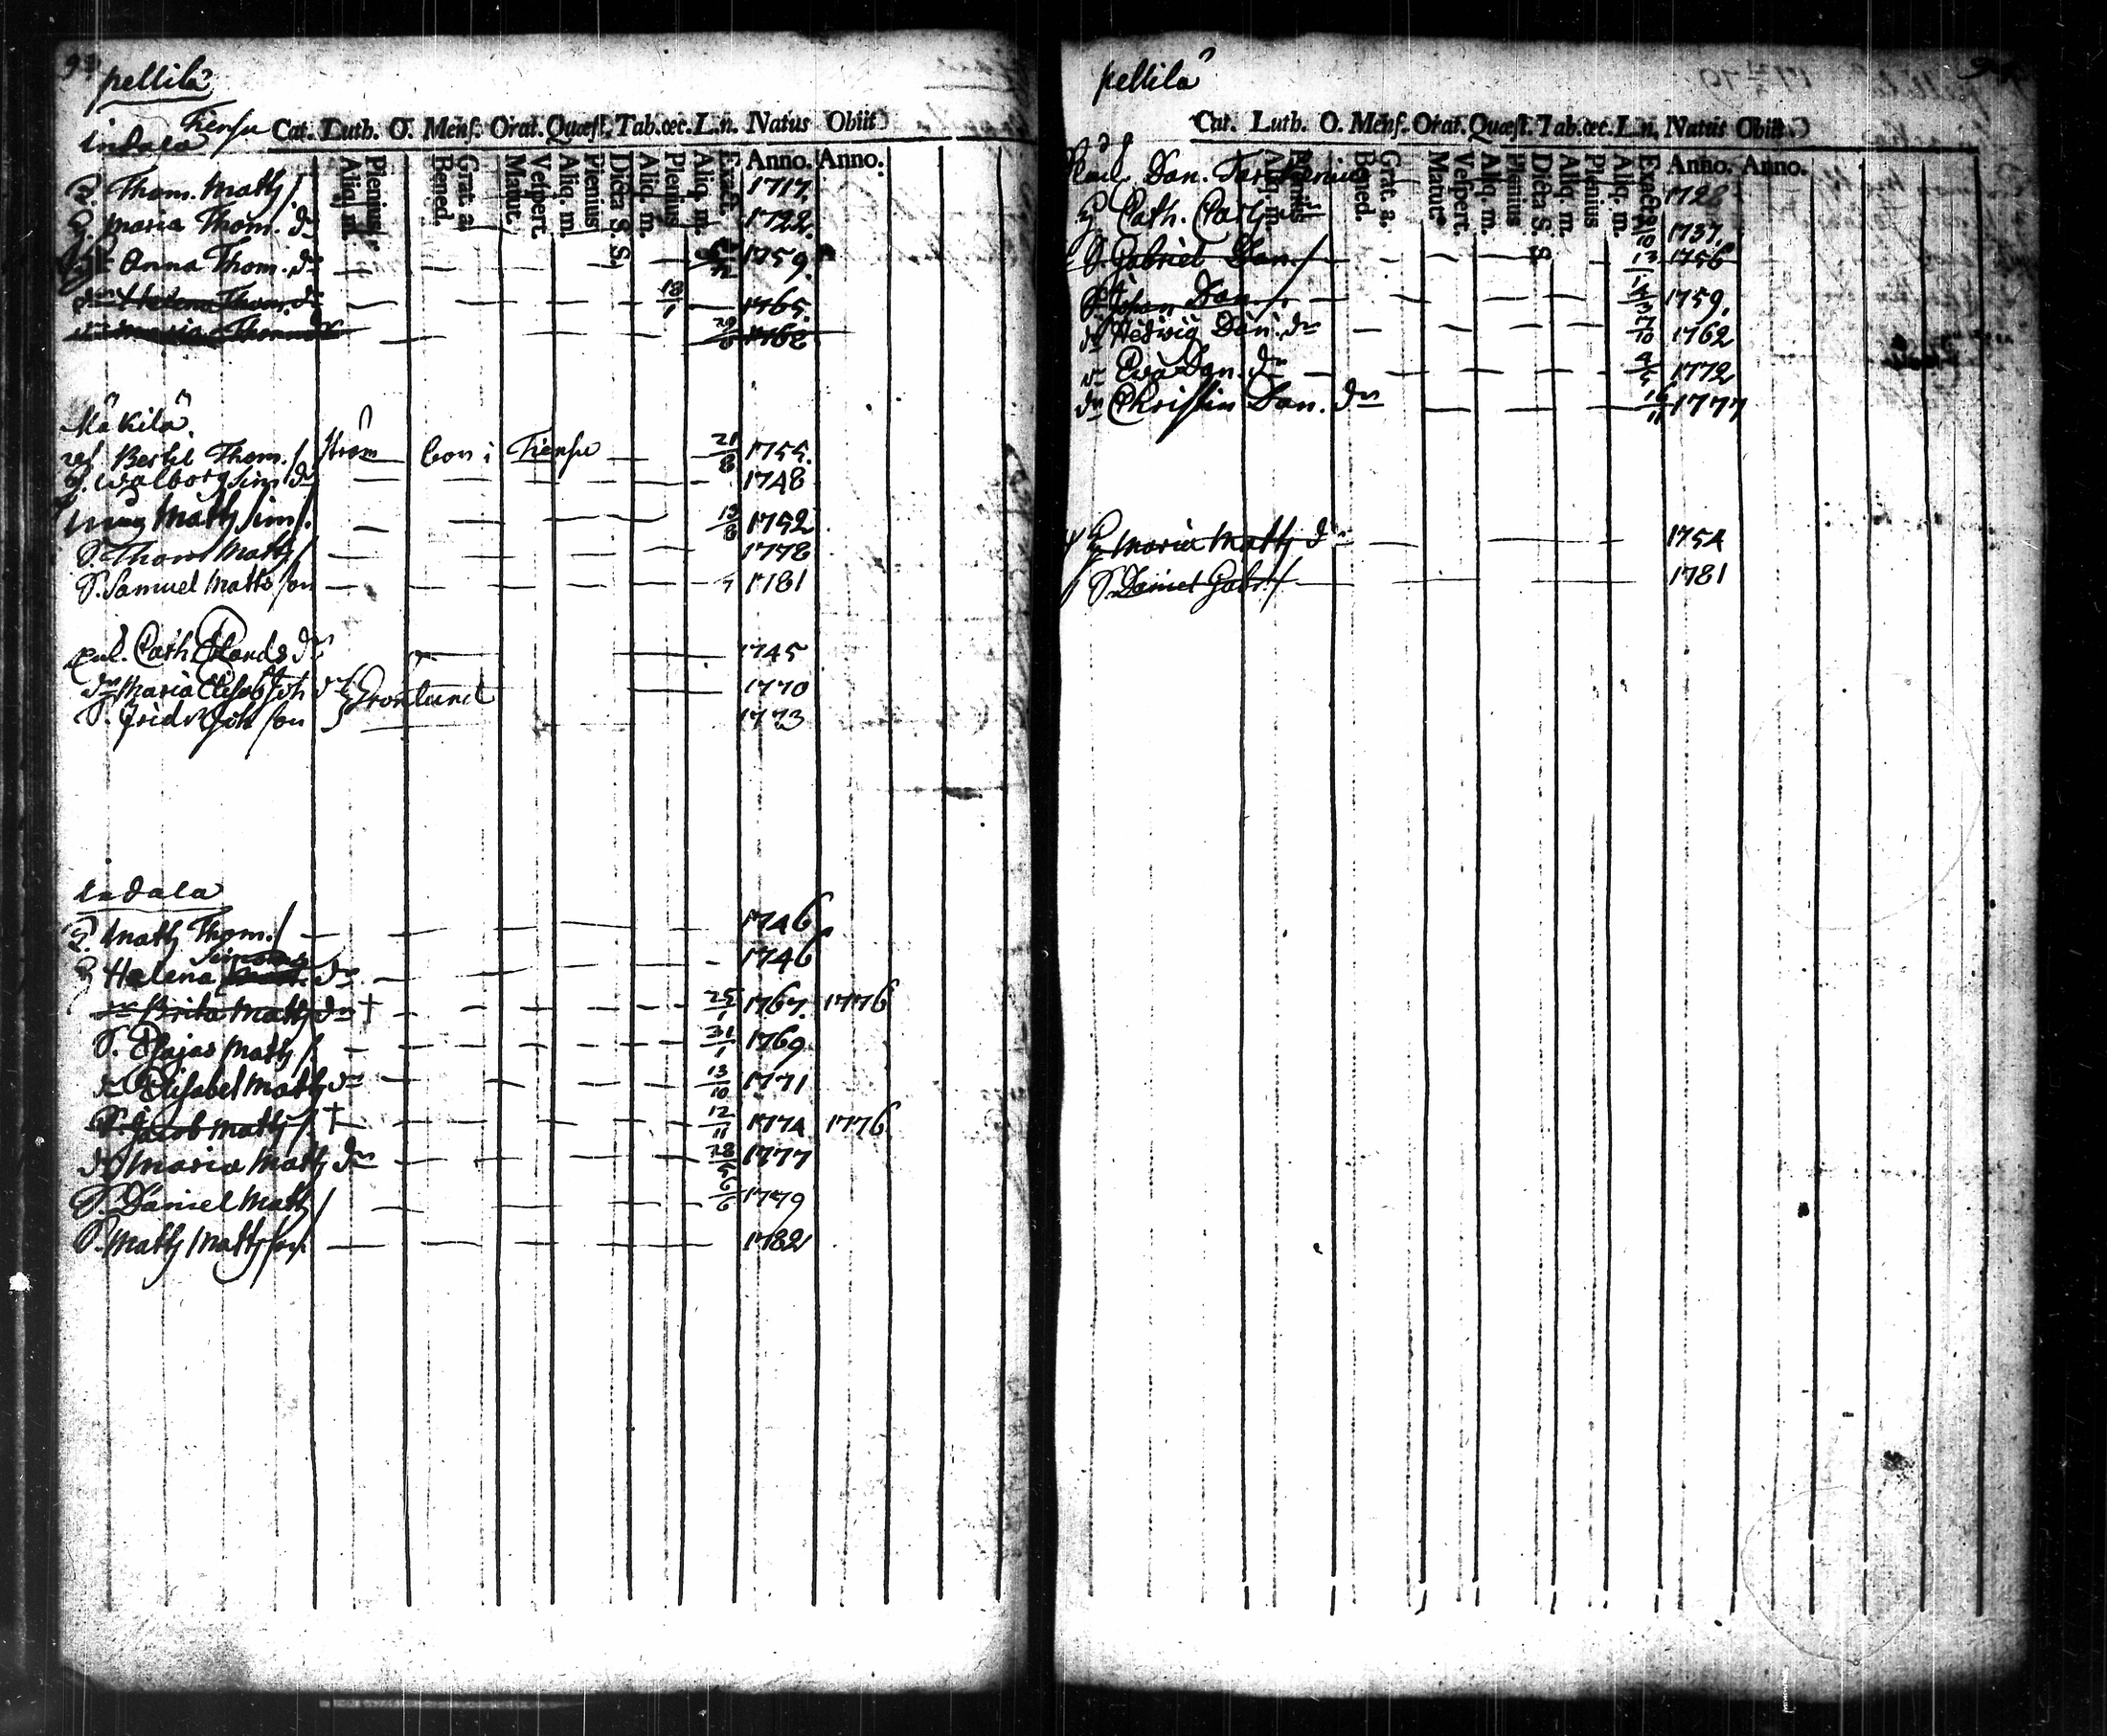 93
pellilä
Indala Tiensu Cat. Luth. O. Mens. Orat. Quæst. Tab. œc. L. n. Natus Obiit
Aliq. m. Plenius Bened. Grat. a. Matut. Vespert. Aliq. m. Plenius Dicta S. S. Aliq. m. Plenius Aliq. m. Exacte Anno. Anno.
Thom. Matts /. 1717.
H. Maria Thom. dr 1722.
Anna Thom. dr 1759.
dr Helena Thom. dr 18/1 1765.
Maria Thoms dr 1768
Mäkilä
Bertil Thom. /. Ström bor i Tiensu 21/8 1755.
H. Walborg Sim dr 1748
Matts Sim /. 13/8 1752
S. Thom Matts /. 1778
S. Samuel Matts son 1781
Cath. Eklands dr 1745
dr Maria Elisab Joh dr Grönlund 1770
S. Fridr Joh son 1773
Indala
Matts Thom. /. 1746
Simons
H Helena dr 1746
dr Brita Matts dr † 25/1 1767. 1776
S. Esajas Matts /. 31/1 1769
dr Elisabet Matts dr 13/10 1771
S. Jacob Matts /. † 12/11 1774 1776
dr Maria Matts dr 28/5 1777
S. Daniel Matts /. 6/6 1779
S. Matts Matts son 1782
pellilä
Cat. Luth. O. Mens. Orat. Quæst. Tab. œc. L. n. Natus Obiit
Aliq. m. Plenius Bened. Grat. a. Matut. Vespert. Aliq. m. Plenius Dicta S. S. Aliq. m. Plenius Aliq. m. Exacte Anno. Anno.
Dan. 1728
H Cath. 1737.
S. Gabriel Dan. /. 13/1 1756
S. Johan Dan. /. 1759.
dr Hedwig Dan. dr 1762
dr Ewa Dan. dr 1772
dr Christin Dan. dr 16/11 1777
H Maria Matts dr 1754
S. Daniel Gabr. /. 1781